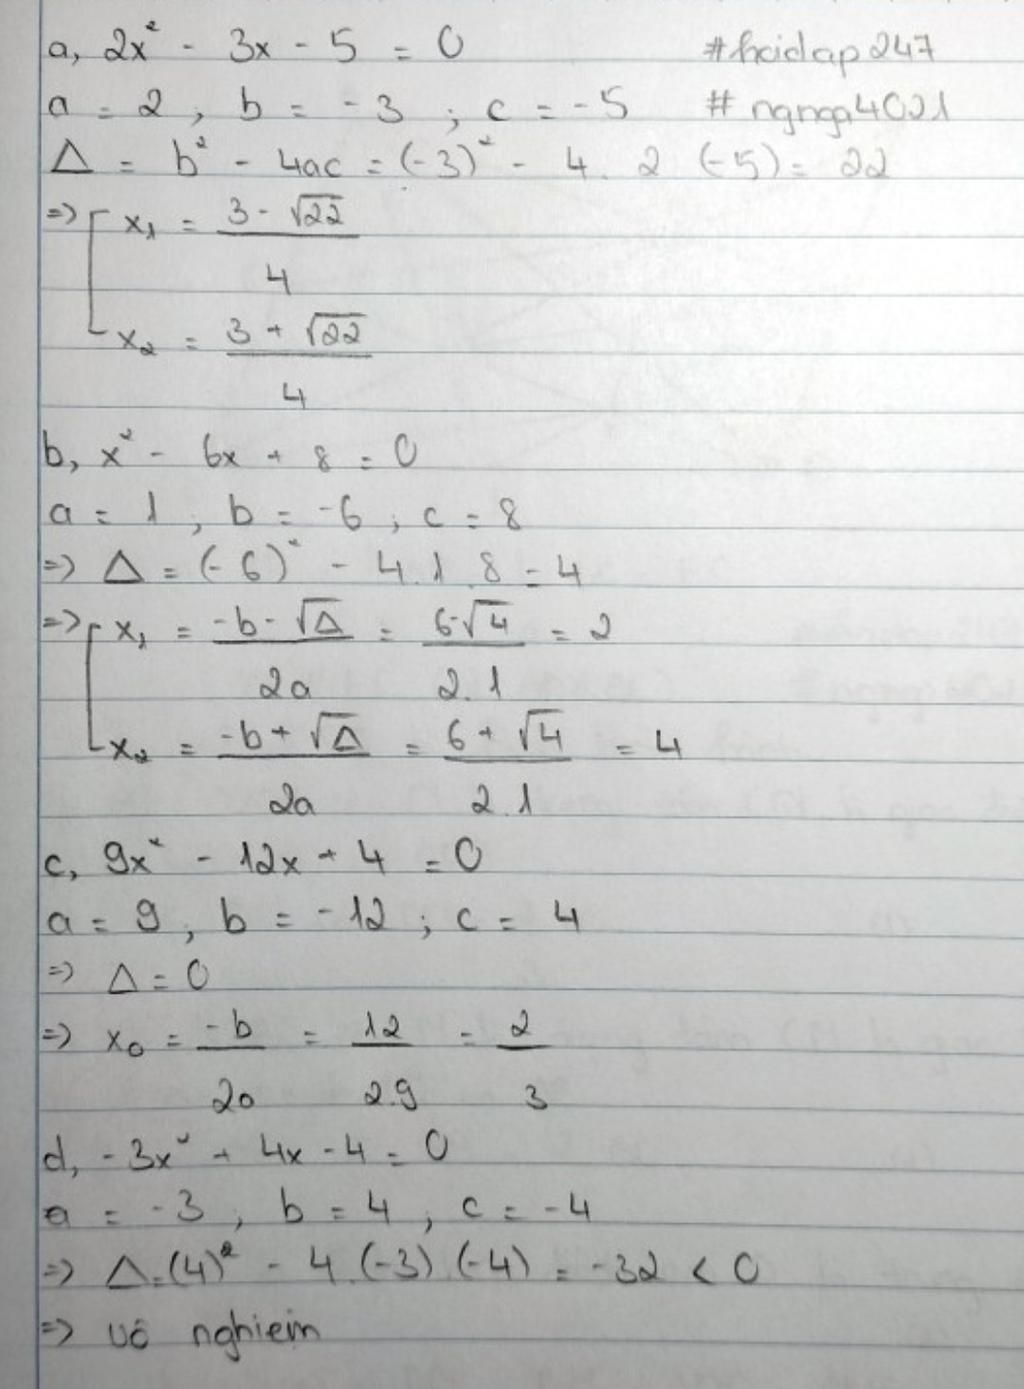 a, 2x² - 3x - 5 = 0 #hoidap247
a = 2, b = -3; c = -5 #ngnga4021
Δ = b² - 4ac = (-3)² - 4. 2 (-5) = 22
=> [ x₁ = (3 - √22) / 4
x₂ = (3 + √22) / 4
b, x² - 6x + 8 = 0
a = 1, b = -6, c = 8
=> Δ = (-6)² - 4.1.8 = 4
=> [ x₁ = (-b - √Δ) / 2a = (6-√4) / 2.1 = 2
x₂ = (-b + √Δ) / 2a = (6 + √4) / 2.1 = 4
c, 9x² - 12x + 4 = 0
a = 9, b = -12; c = 4
=> Δ = 0
=> x₀ = -b / 2a = 12 / 2.9 = 2 / 3
d, -3x² + 4x - 4 = 0
a = -3, b = 4, c = -4
=> Δ = (4)² - 4.(-3).(-4) = -32 < 0
=> vô nghiệm